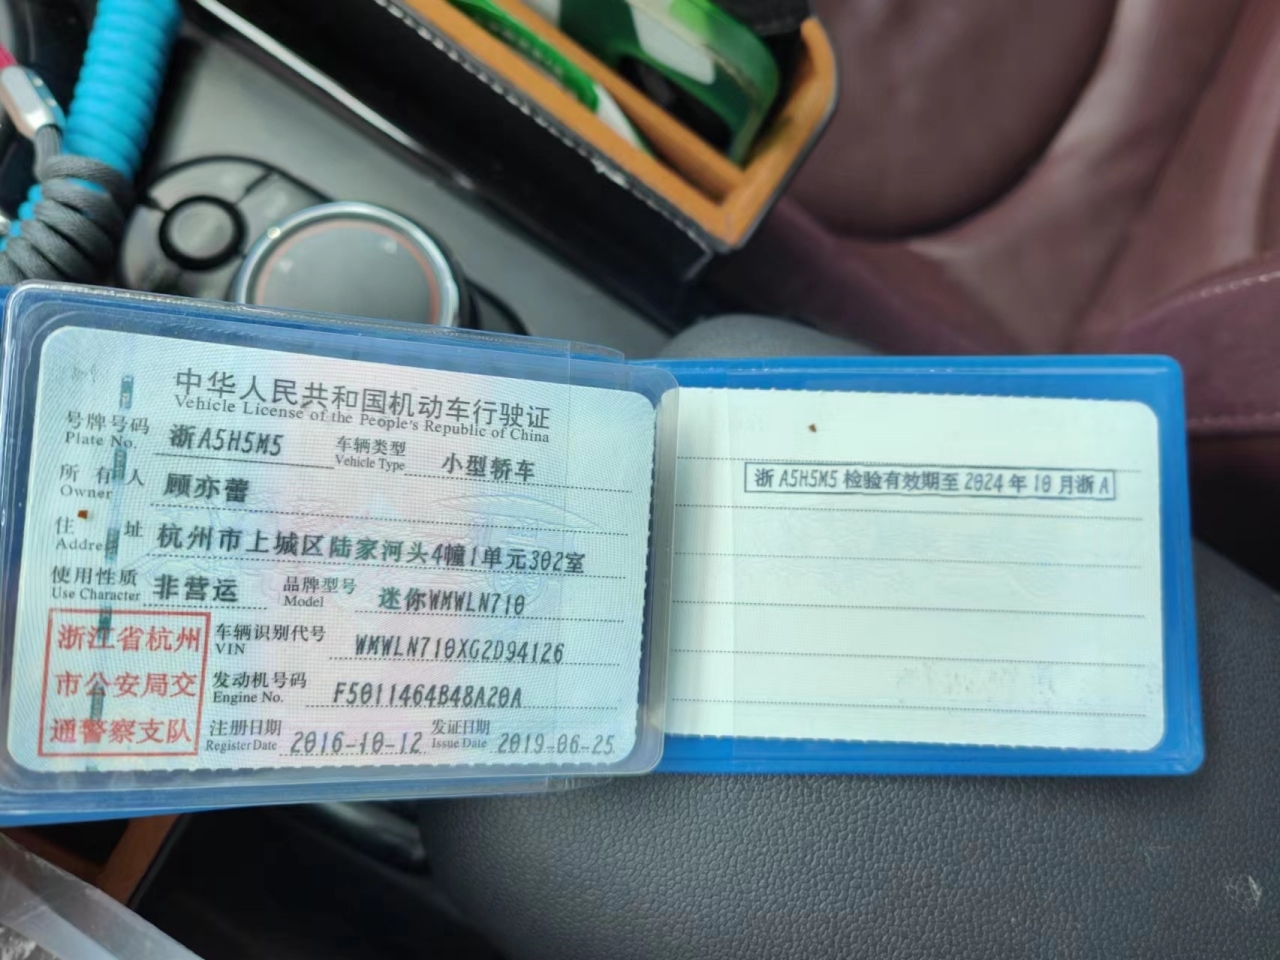 中华人民共和国机动车行驶证
Vehicle License of the People's Republic of China
号牌号码 浙A5H5M5 车辆类型 小型轿车
Plate No. Vehicle Type
所有人 顾亦蕾
Owner
住址 杭州市上城区陆家河头4幢1单元302室
Address
使用性质 非营运 品牌型号 迷你WMWLN710
Use Character Model
浙江省杭州
市公安局交
通警察支队
车辆识别代号 WMWLN710XG2D94126
VIN
发动机号码 F5011464B48A20A
Engine No.
注册日期 2016-10-12 发证日期 2019-06-25
Register Date Issue Date
浙A5H5M5检验有效期至2024年10月浙A